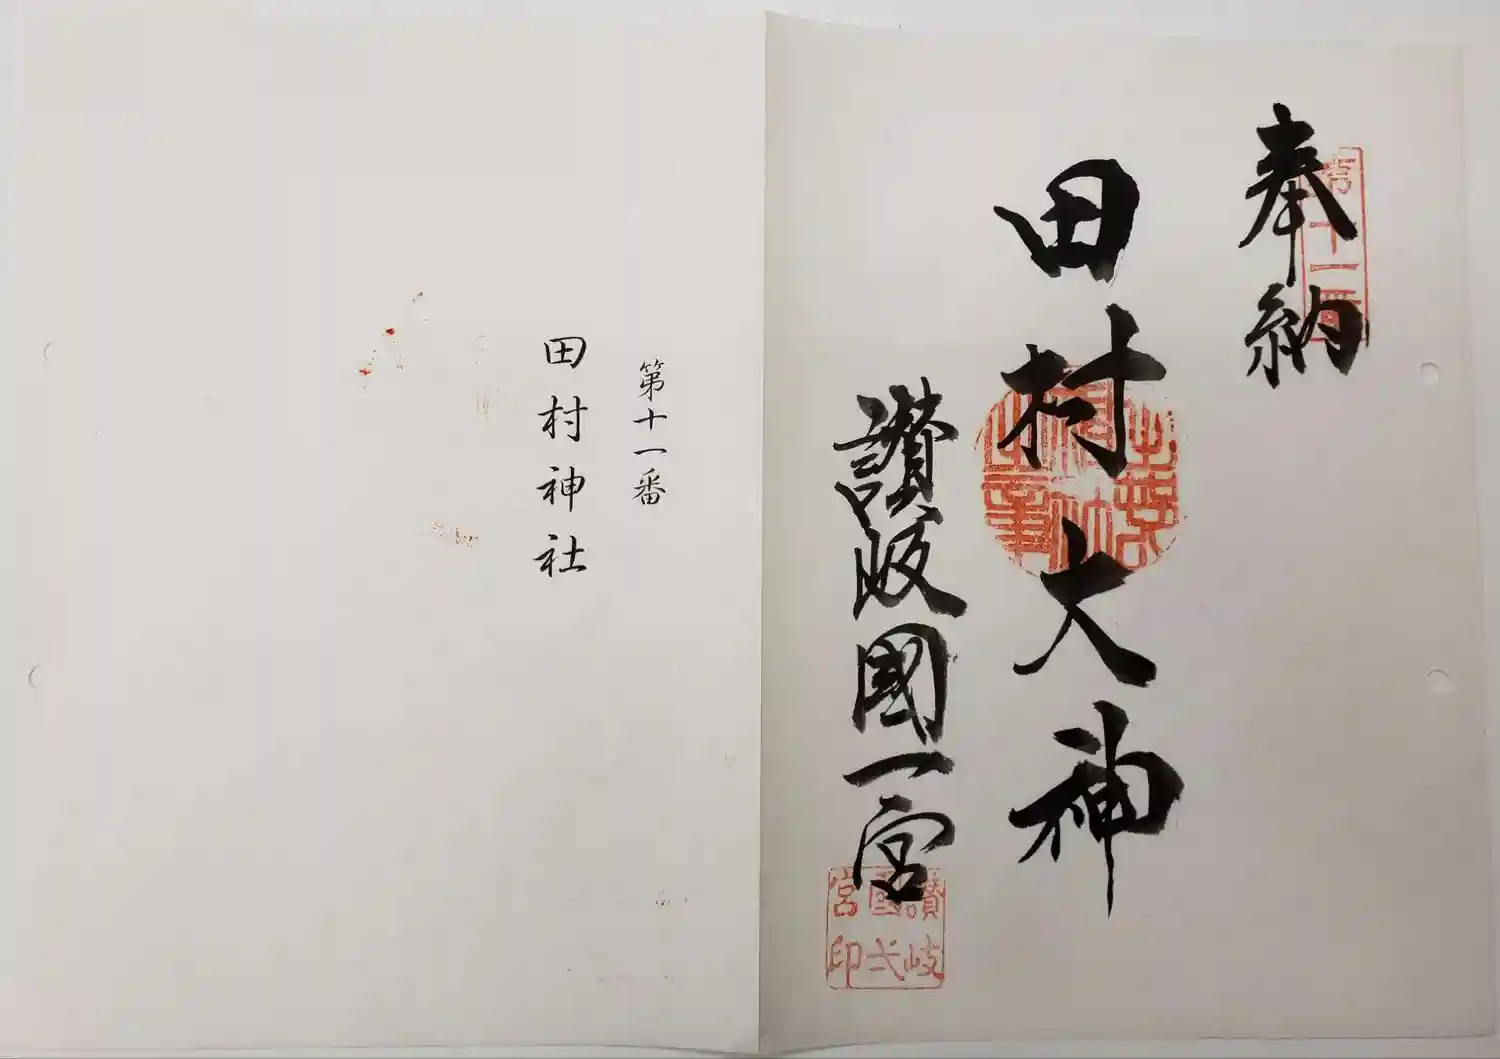 奉納
第十一番
田村大神
讃岐國一宮
讃岐國弌宮印
第十一番
田村神社